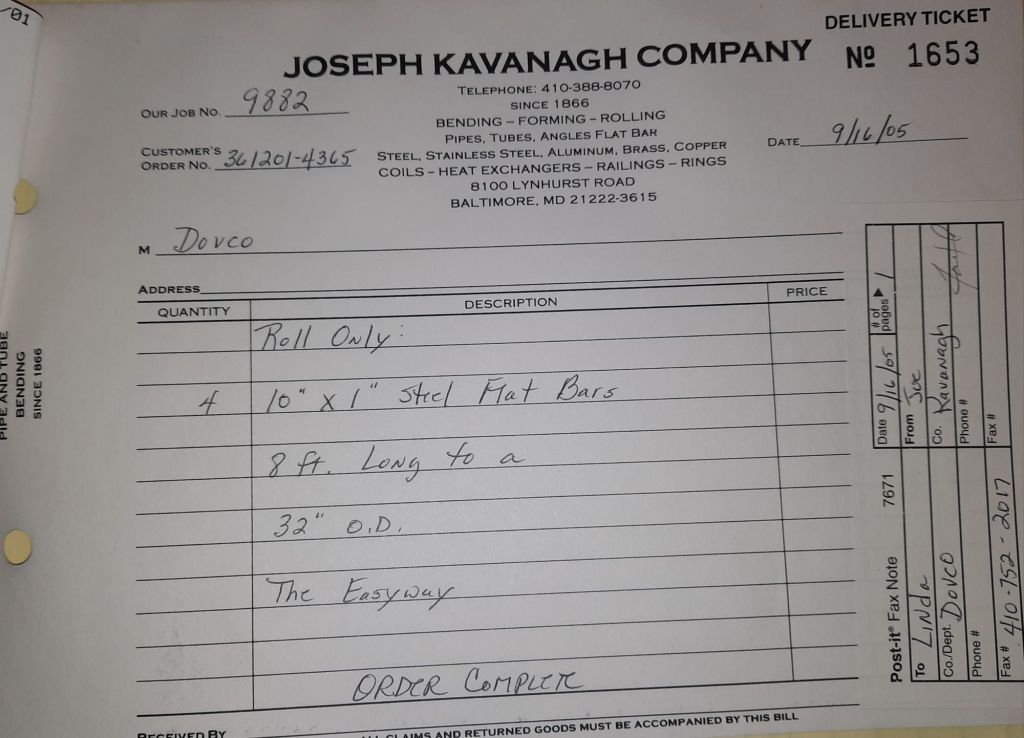 /01
DELIVERY TICKET
JOSEPH KAVANAGH COMPANY
Nº 1653
TELEPHONE: 410-388-8070
SINCE 1866
OUR JOB NO. 9882
BENDING – FORMING – ROLLING
PIPES, TUBES, ANGLES FLAT BAR
DATE 9/16/05
CUSTOMER'S
ORDER NO. 361201-4365
STEEL, STAINLESS STEEL, ALUMINUM, BRASS, COPPER
COILS – HEAT EXCHANGERS – RAILINGS – RINGS
8100 LYNHURST ROAD
BALTIMORE, MD 21222-3615
M Dovco
ADDRESS
QUANTITY DESCRIPTION PRICE
Roll Only:
4 10" x 1" Steel Flat Bars
8 ft. Long to a
32" O.D.
The Easyway
ORDER COMPLETE
RECEIVED BY
ALL CLAIMS AND RETURNED GOODS MUST BE ACCOMPANIED BY THIS BILL
PIPE AND TUBE
BENDING
SINCE 1866
Post-it® Fax Note 7671 Date 9/16/05 # of pages ▶ 1
To Linda From Joe
Co./Dept. Dovco Co. Kavanagh
Phone # Phone #
Fax # 410-752-2017 Fax #